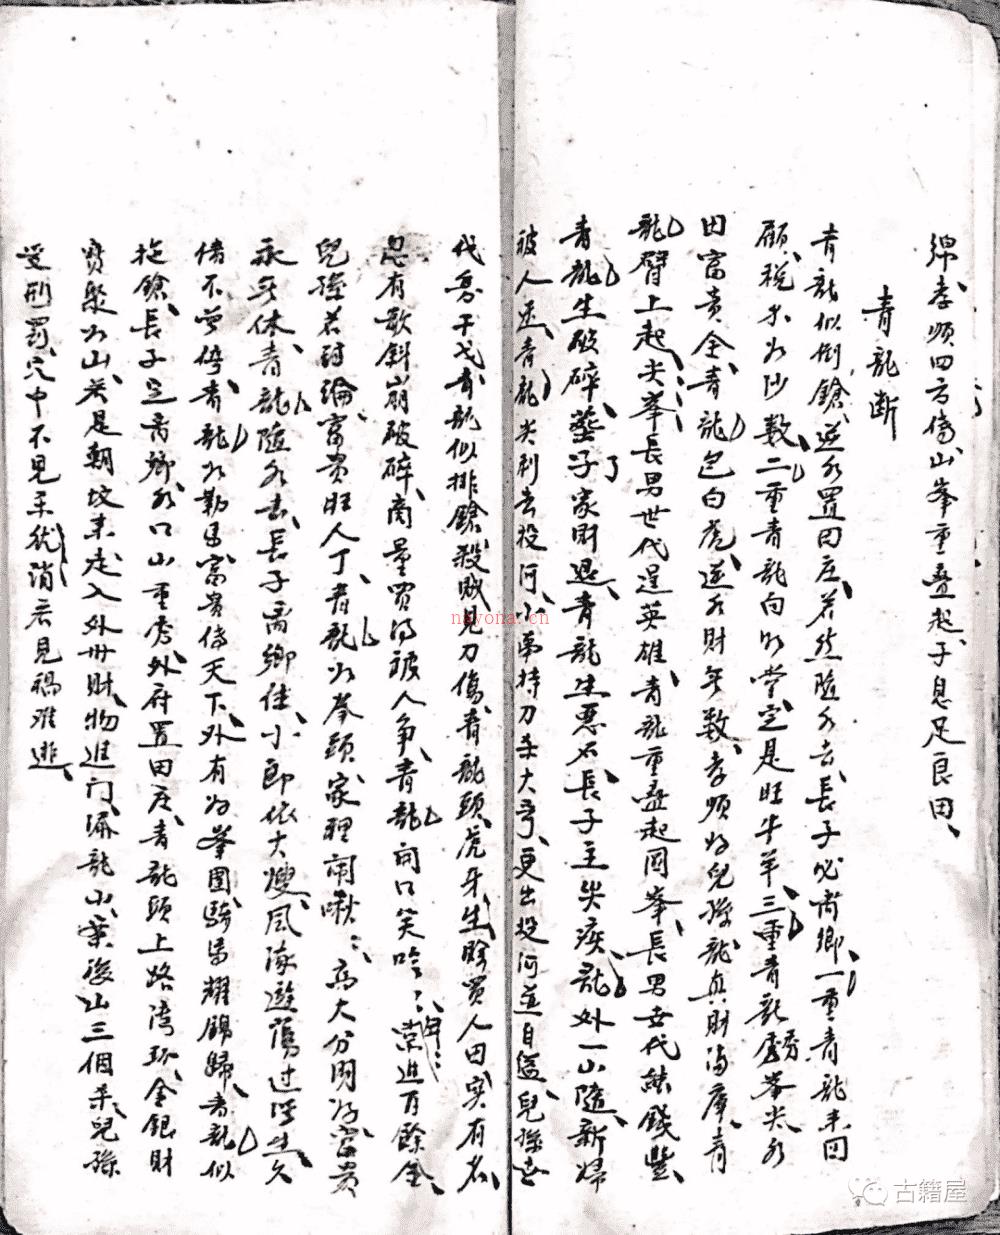 綿、孝順四方傳、山峯重疊起、子息足良田、
青龍断
青龍似倒鎗、逆水置田庄、若然隨水去、長子必离鄉、一重青龍来回
顧、税水如沙数、二重青龍向明堂、定是旺牛羊、三重青龍秀峯尖、水
田富貴全、青龍包白虎、逆水財無数、孝順好兒孫、龍真財滿庫、青
龍臂上起尖峯、長男世代逞英雄、青龍重叠起圓峯、長男世代結錢豊、
青龍生破碎、蔭子家財退、青龍生悪石、長子主尖疾、龍外一山隨、新婦
被人迷、青龍尖利去投河、小弟持刀杀大哥、更出投河並自縊、兒孫世
代務干戈、青龍似排鎗、殺賊見刀傷、青龍頭、虎牙生、賒買人田实有名、
忽有歌斜崩破碎、商量買得被人争、青龍開口笑吟吟、常進百餘金、
兒孫若討論、富貴旺人丁、青龍如拳頭、家理閙啾啾、高大分明好、富貴
永無休、青龍隨水去、長子离鄉住、小郎依大嫂、風流遊蕩过、此生欠
債不曾停、青龍如勒馬、富貴傳天下、外有好峯圍、騎馬耀錦歸、青龍似
拖鎗、長子足离鄉、水口山重秀、外府置田庄、青龍頭上路湾环、金銀財
寶聚如山、若是朝坟来走入、外州財物進門、龍山葉後山三個杀、兒孫
受刑罰、穴中不見禾犹消、若見禍难逃、
nayona.cn
古籍屋